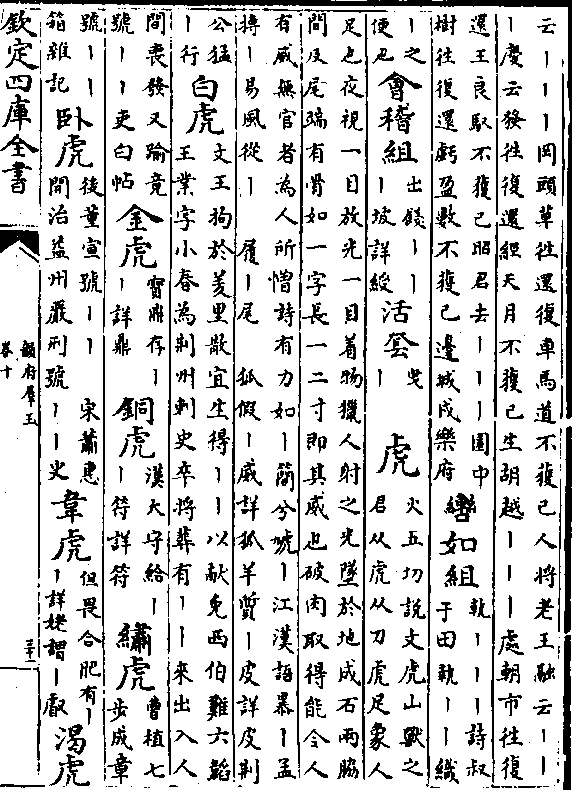 云｜｜｜罔頭草徃還復車馬道不獲已人將老王融云｜｜
｜慶云發徃復還經天月不獲已生胡越｜｜｜處朝市徃復
還王良馭不獲已昭君去｜｜｜園中
樹徃復還虧盈數不獲已邊城戍樂府
轡如組
執｜｜｜詩叔
于田執｜｜織
｜之
便也
會稽組
出餞｜｜
｜坡詳綬
活套
曳
｜
虎
火五切說文虎山獸之
君从虎从刀虎足象人
足也夜視一目放光一目着物獵人射之光墜於地成石兩脇
間及尾端有骨如一字長一二寸即其威也破肉取得能令人
有威無官者為人所憎詩有力如｜簡兮虓｜江漢語暴｜孟
搏｜易風從｜履｜尾 狐假｜威詳狐羊質｜皮詳皮荆
公猛
｜行
白虎
文王狗於羑里散宜生得｜｜以献免西伯難六韜
王業字小春為荆州刺史卒將葬有｜｜來出入人
間喪發又踰竟
號｜｜吏白帖
金虎
寳鼎存｜
｜詳鼎
銅虎
漢大守給｜
｜符詳符
繡虎
曹植七
步成章
號｜｜
箱雜記
卧虎
後董宣號｜｜ 宋蕭惠
開治益州嚴刑號｜｜史
韋虎
但畏合肥有｜
｜詳姥謂｜叡
渴虎
欽定四庫全書
韻府羣玉
卷十
三十二